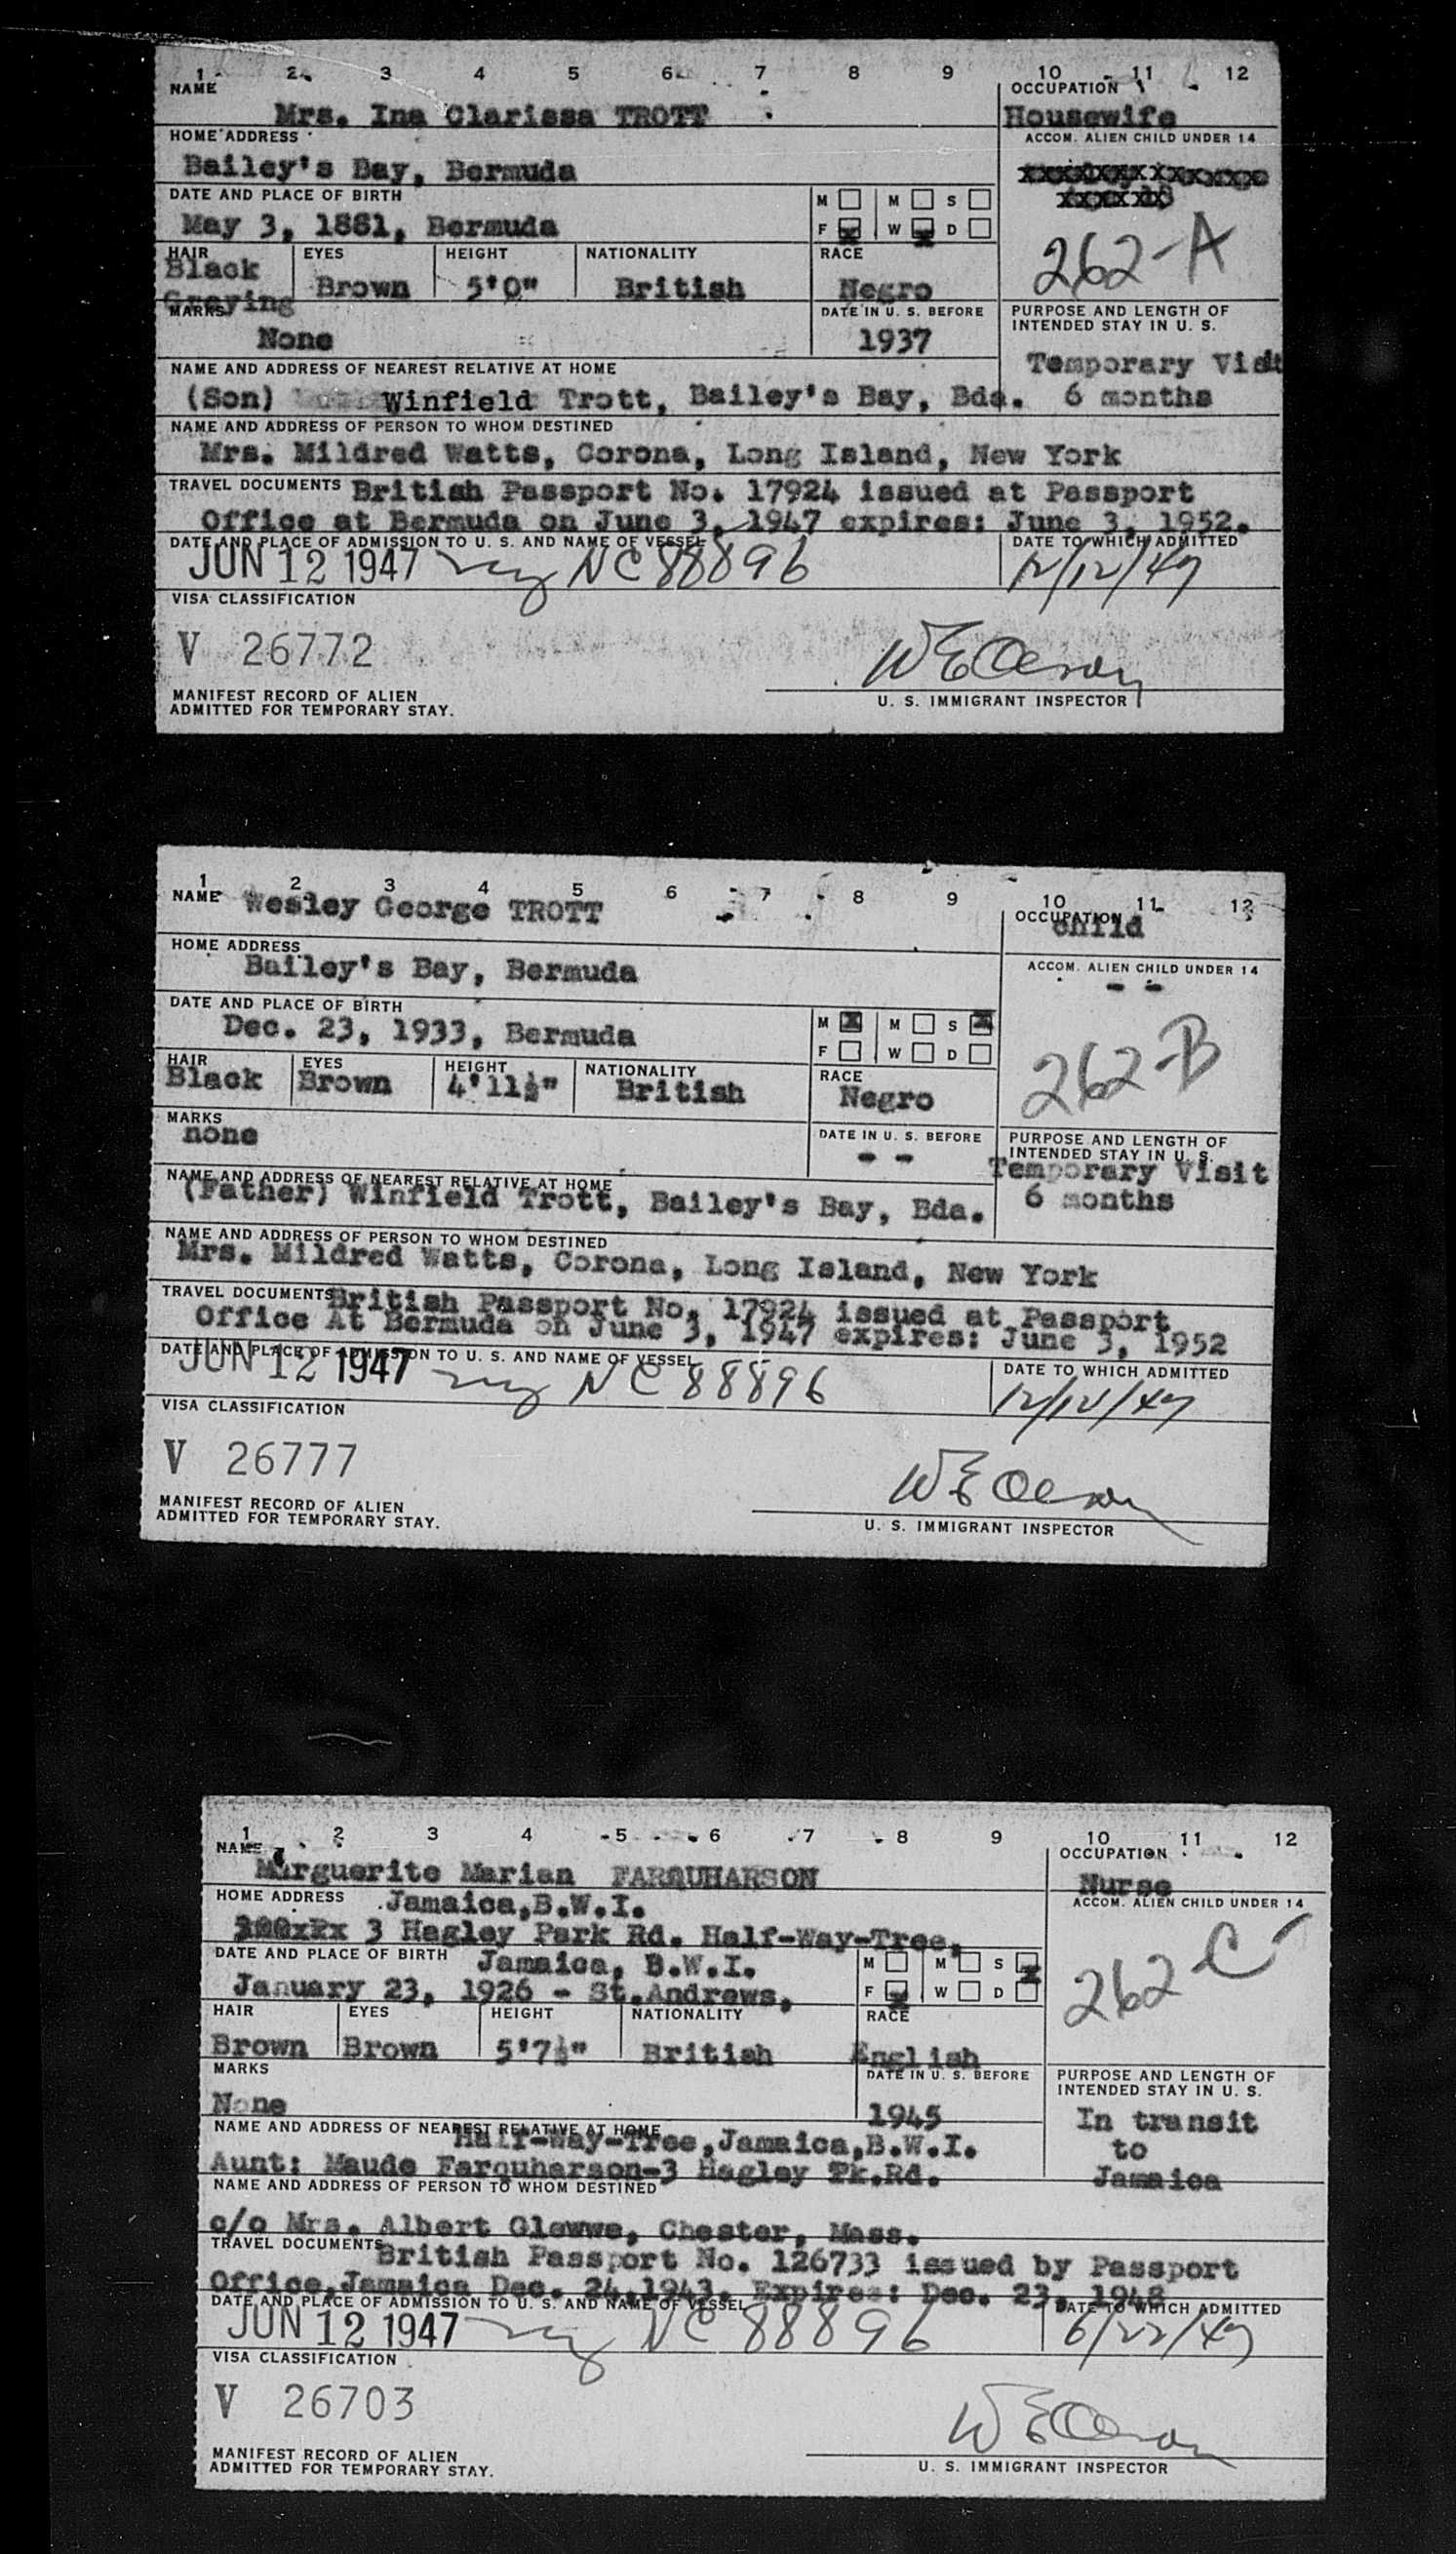 1 2 3 4 5 6 7 8 9 10 11 12
NAME OCCUPATION
Mrs. Ina Clarissa TROTT Housewife
HOME ADDRESS ACCOM. ALIEN CHILD UNDER 14
Bailey's Bay, Bermuda
DATE AND PLACE OF BIRTH M M S
May 3, 1881, Bermuda F W D
262-A
HAIR EYES HEIGHT NATIONALITY RACE
Black Graying Brown 5'0" British Negro
MARKS DATE IN U. S. BEFORE PURPOSE AND LENGTH OF INTENDED STAY IN U. S.
None 1937 Temporary Visit
NAME AND ADDRESS OF NEAREST RELATIVE AT HOME
(Son) Winfield Trott, Bailey's Bay, Bda. 6 months
NAME AND ADDRESS OF PERSON TO WHOM DESTINED
Mrs. Mildred Watts, Corona, Long Island, New York
TRAVEL DOCUMENTS British Passport No. 17924 issued at Passport
Office at Bermuda on June 3, 1947 expires: June 3, 1952.
DATE AND PLACE OF ADMISSION TO U. S. AND NAME OF VESSEL DATE TO WHICH ADMITTED
JUN 12 1947 NY NC 88896 12/12/47
VISA CLASSIFICATION
V 26772 W E Olson
MANIFEST RECORD OF ALIEN
ADMITTED FOR TEMPORARY STAY. U. S. IMMIGRANT INSPECTOR
1 2 3 4 5 6 7 8 9 10 11 12
NAME Wesley George TROTT OCCUPATION child
HOME ADDRESS ACCOM. ALIEN CHILD UNDER 14
Bailey's Bay, Bermuda - -
DATE AND PLACE OF BIRTH M M S
Dec. 23, 1933, Bermuda F W D
262-B
HAIR EYES HEIGHT NATIONALITY RACE
Black Brown 4'11½" British Negro
MARKS DATE IN U. S. BEFORE PURPOSE AND LENGTH OF INTENDED STAY IN U. S.
none - - Temporary Visit
NAME AND ADDRESS OF NEAREST RELATIVE AT HOME
(Father) Winfield Trott, Bailey's Bay, Bda. 6 months
NAME AND ADDRESS OF PERSON TO WHOM DESTINED
Mrs. Mildred Watts, Corona, Long Island, New York
TRAVEL DOCUMENTS British Passport No. 17924 issued at Passport
Office At Bermuda on June 3, 1947 expires: June 3, 1952
DATE AND PLACE OF ADMISSION TO U. S. AND NAME OF VESSEL DATE TO WHICH ADMITTED
JUN 12 1947 NY NC 88896 12/12/47
VISA CLASSIFICATION
V 26777 W E Olson
MANIFEST RECORD OF ALIEN
ADMITTED FOR TEMPORARY STAY. U. S. IMMIGRANT INSPECTOR
1 2 3 4 5 6 7 8 9 10 11 12
NAME OCCUPATION
Marguerite Marian FARQUHARSON Nurse
HOME ADDRESS Jamaica,B.W.I. ACCOM. ALIEN CHILD UNDER 14
3 Hagley Park Rd. Half-Way-Tree,
DATE AND PLACE OF BIRTH Jamaica, B.W.I. M M S
January 23, 1926 - St.Andrews, F W D
262 C
HAIR EYES HEIGHT NATIONALITY RACE
Brown Brown 5'7½" British English
MARKS DATE IN U. S. BEFORE PURPOSE AND LENGTH OF INTENDED STAY IN U. S.
None 1945 In transit
NAME AND ADDRESS OF NEAREST RELATIVE AT HOME
Half-Way-Tree,Jamaica,B.W.I. to
Aunt: Maude Farquharson-3 Hagley Pk.Rd. Jamaica
NAME AND ADDRESS OF PERSON TO WHOM DESTINED
c/o Mrs. Albert Glewwe, Chester, Mass.
TRAVEL DOCUMENTS British Passport No. 126733 issued by Passport
Office,Jamaica Dec. 24,1943. Expires: Dec. 23, 1948
DATE AND PLACE OF ADMISSION TO U. S. AND NAME OF VESSEL DATE TO WHICH ADMITTED
JUN 12 1947 NY NC 88896 6/22/47
VISA CLASSIFICATION
V 26703 W E Olson
MANIFEST RECORD OF ALIEN
ADMITTED FOR TEMPORARY STAY. U. S. IMMIGRANT INSPECTOR